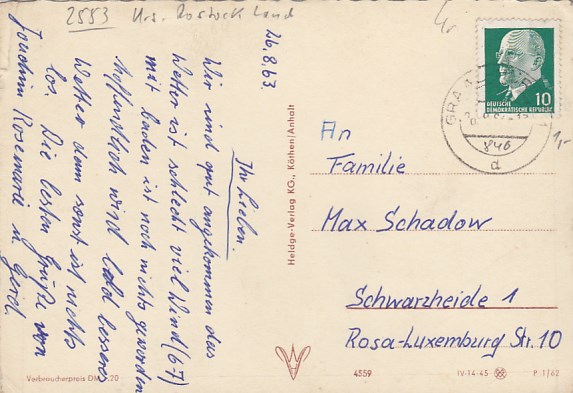 2553 Krs. Rostock Land
26.8.63
Ihr Lieben.
Wir sind gut angekommen das
Wetter ist schlecht viel Wind (6-7)
mit baden ist noch nichts geworden
Hoffentlich wird bald besseres
Wetter denn sonst ist nichts
los. Die besten Grüße von
Joachim Rosemarie u. Gerd.
Verbraucherpreis DM -.20
Heldge-Verlag KG., Köthen/Anhalt
DEUTSCHE 10
DEMOKRATISCHE REPUBLIK
GRAAL
846
d
1,-
An
Familie
Max Schadow
Schwarzheide 1
Rosa-Luxemburg Str. 10
4559 IV-14-45 P 1/62